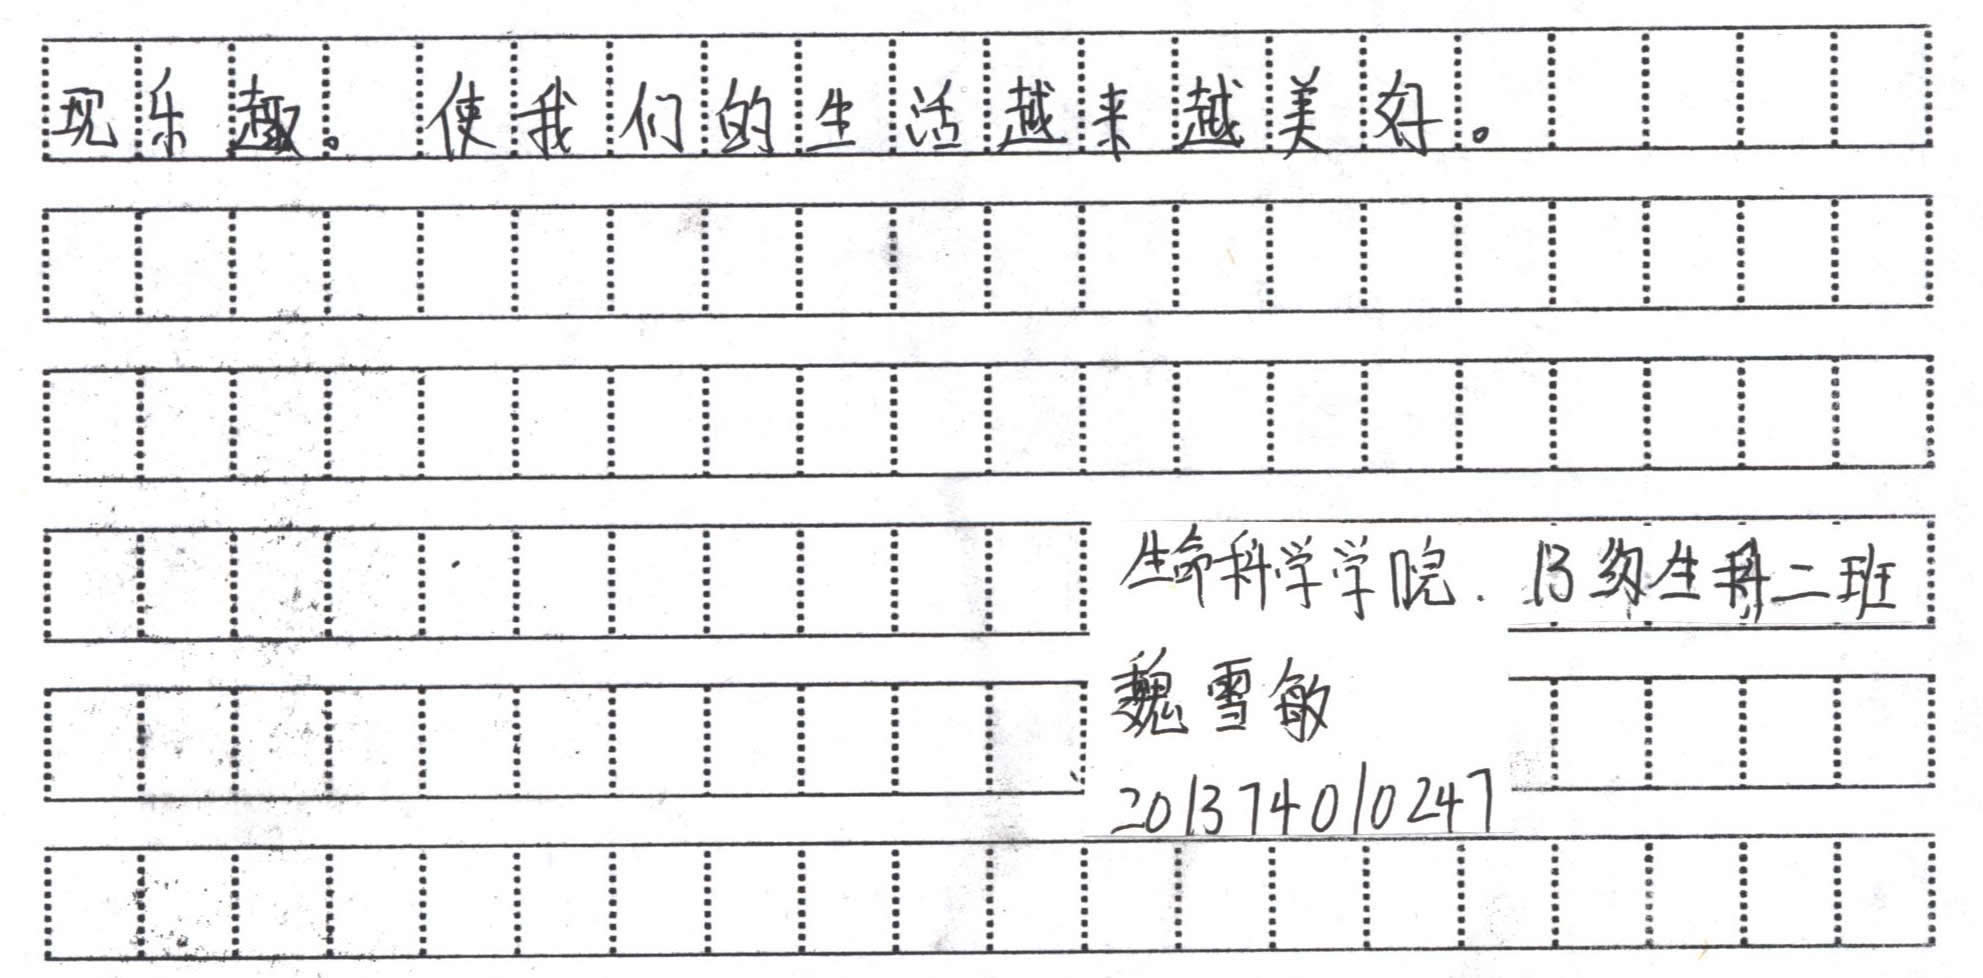 现乐趣。使我们的生活越来越美好。
生命科学学院. 13级生科二班
魏雪敏
201374010247